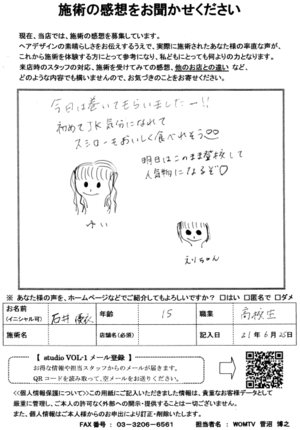 施術の感想をお聞かせください
現在、当店では、施術の感想を募集しています。
ヘアデザインの素晴らしさをお伝えするうえで、実際に施術されたあなた様の率直な声が、
これから施術を体験する方にとって参考になり、私どもにとっても何よりの力となります。
来店時のスタッフの対応、施術を受けてみての感想、他のお店との違い など、
どのような内容でも構いませんので、お気づきのことをお寄せください。
今日は巻いてもらいましたー!!
初めてJK気分になれて
スシローもおいしく食べれそう♡♡
明日はこのまま登校して
人気物になるぞ♡
ゆい
えりちゃん
※ あなた様の声を、ホームページなどでご紹介してもよろしいですか? □はい □匿名で □ダメ
お名前
(イニシャル可)
石井 優衣
年齢
15
職業
高校生
施術名
店舗名(必須)
記入日
21年6月25日
【 studio VOL-1 メール登録 】
お得な情報や担当スタッフからのメールが届きます。
QRコードを読み取って、空メールをお送りください。
<<個人情報保護について>>この用紙にご記入いただきました情報は、貴重なお客様の声として
厳重に管理し、ご本人の許可なく外部への開示・提供することは一切ございません。
また、個人情報はご本人様からのお申出により訂正・削除いたします。
FAX番号 : 03-3206-6561
担当者名 : WOMTV 菅沼 博之